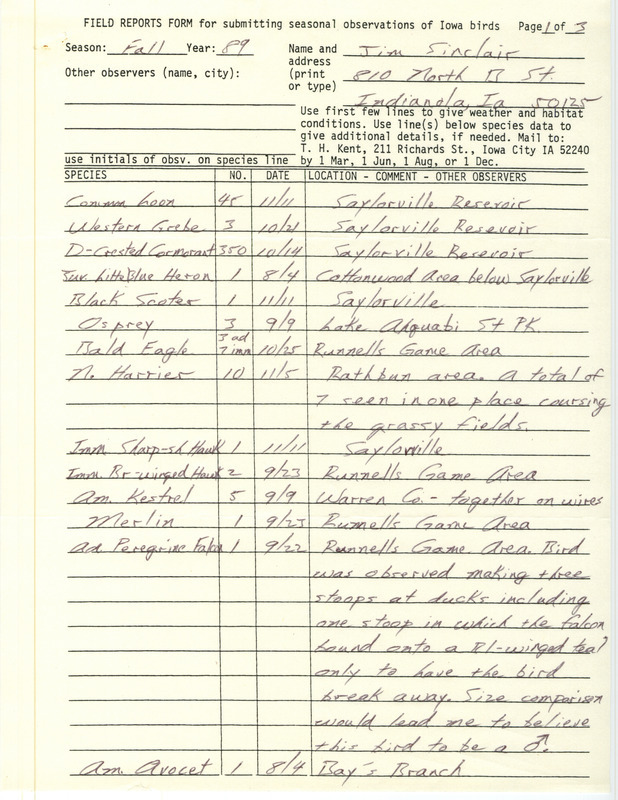 FIELD REPORTS FORM for submitting seasonal observations of Iowa birds Page 1 of 3
Season: Fall Year: 89 Name and Jim Sinclair
address 810 North B St.
Other observers (name, city): (print
or type) Indianola, Ia 50125
Use first few lines to give weather and habitat
conditions. Use line(s) below species data to
give additional details, if needed. Mail to:
T. H. Kent, 211 Richards St., Iowa City IA 52240
use initials of obsv. on species line by 1 Mar, 1 Jun, 1 Aug, or 1 Dec.
SPECIES NO. DATE LOCATION - COMMENT - OTHER OBSERVERS
Common Loon 45 11/11 Saylorville Reservoir
Western Grebe 3 10/21 Saylorville Resevoir
D-Crested Cormorant 350 10/14 Saylorville Resevoir
Juv. Little Blue Heron 1 8/4 Cottonwood Area below Saylorville
Black Scoter 1 11/11 Saylorville
Osprey 3 9/9 Lake Ahquabi St PK
Bald Eagle 3 ad 7 imm 10/25 Runnells Game Area
N. Harrier 10 11/5 Rathbun area. A total of
7 seen in one place coursing
the grassy fields.
Imm. Sharp-sh Hawk 1 11/11 Saylorville
Imm. Br-winged Hawk 2 9/23 Runnells Game Area
Am. Kestrel 5 9/9 Warren Co. - together on wires
Merlin 1 9/23 Runnells Game Area
ad Peregrine Falcon 1 9/22 Runnells Game Area. Bird
was observed making three
stoops at ducks including
one stoop in which the falcon
bound onto a Bl-winged teal
only to have the bird
break away. Size comparison
would lead me to believe
this bird to be a ♂.
Am. Avocet 1 8/4 Bay's Branch